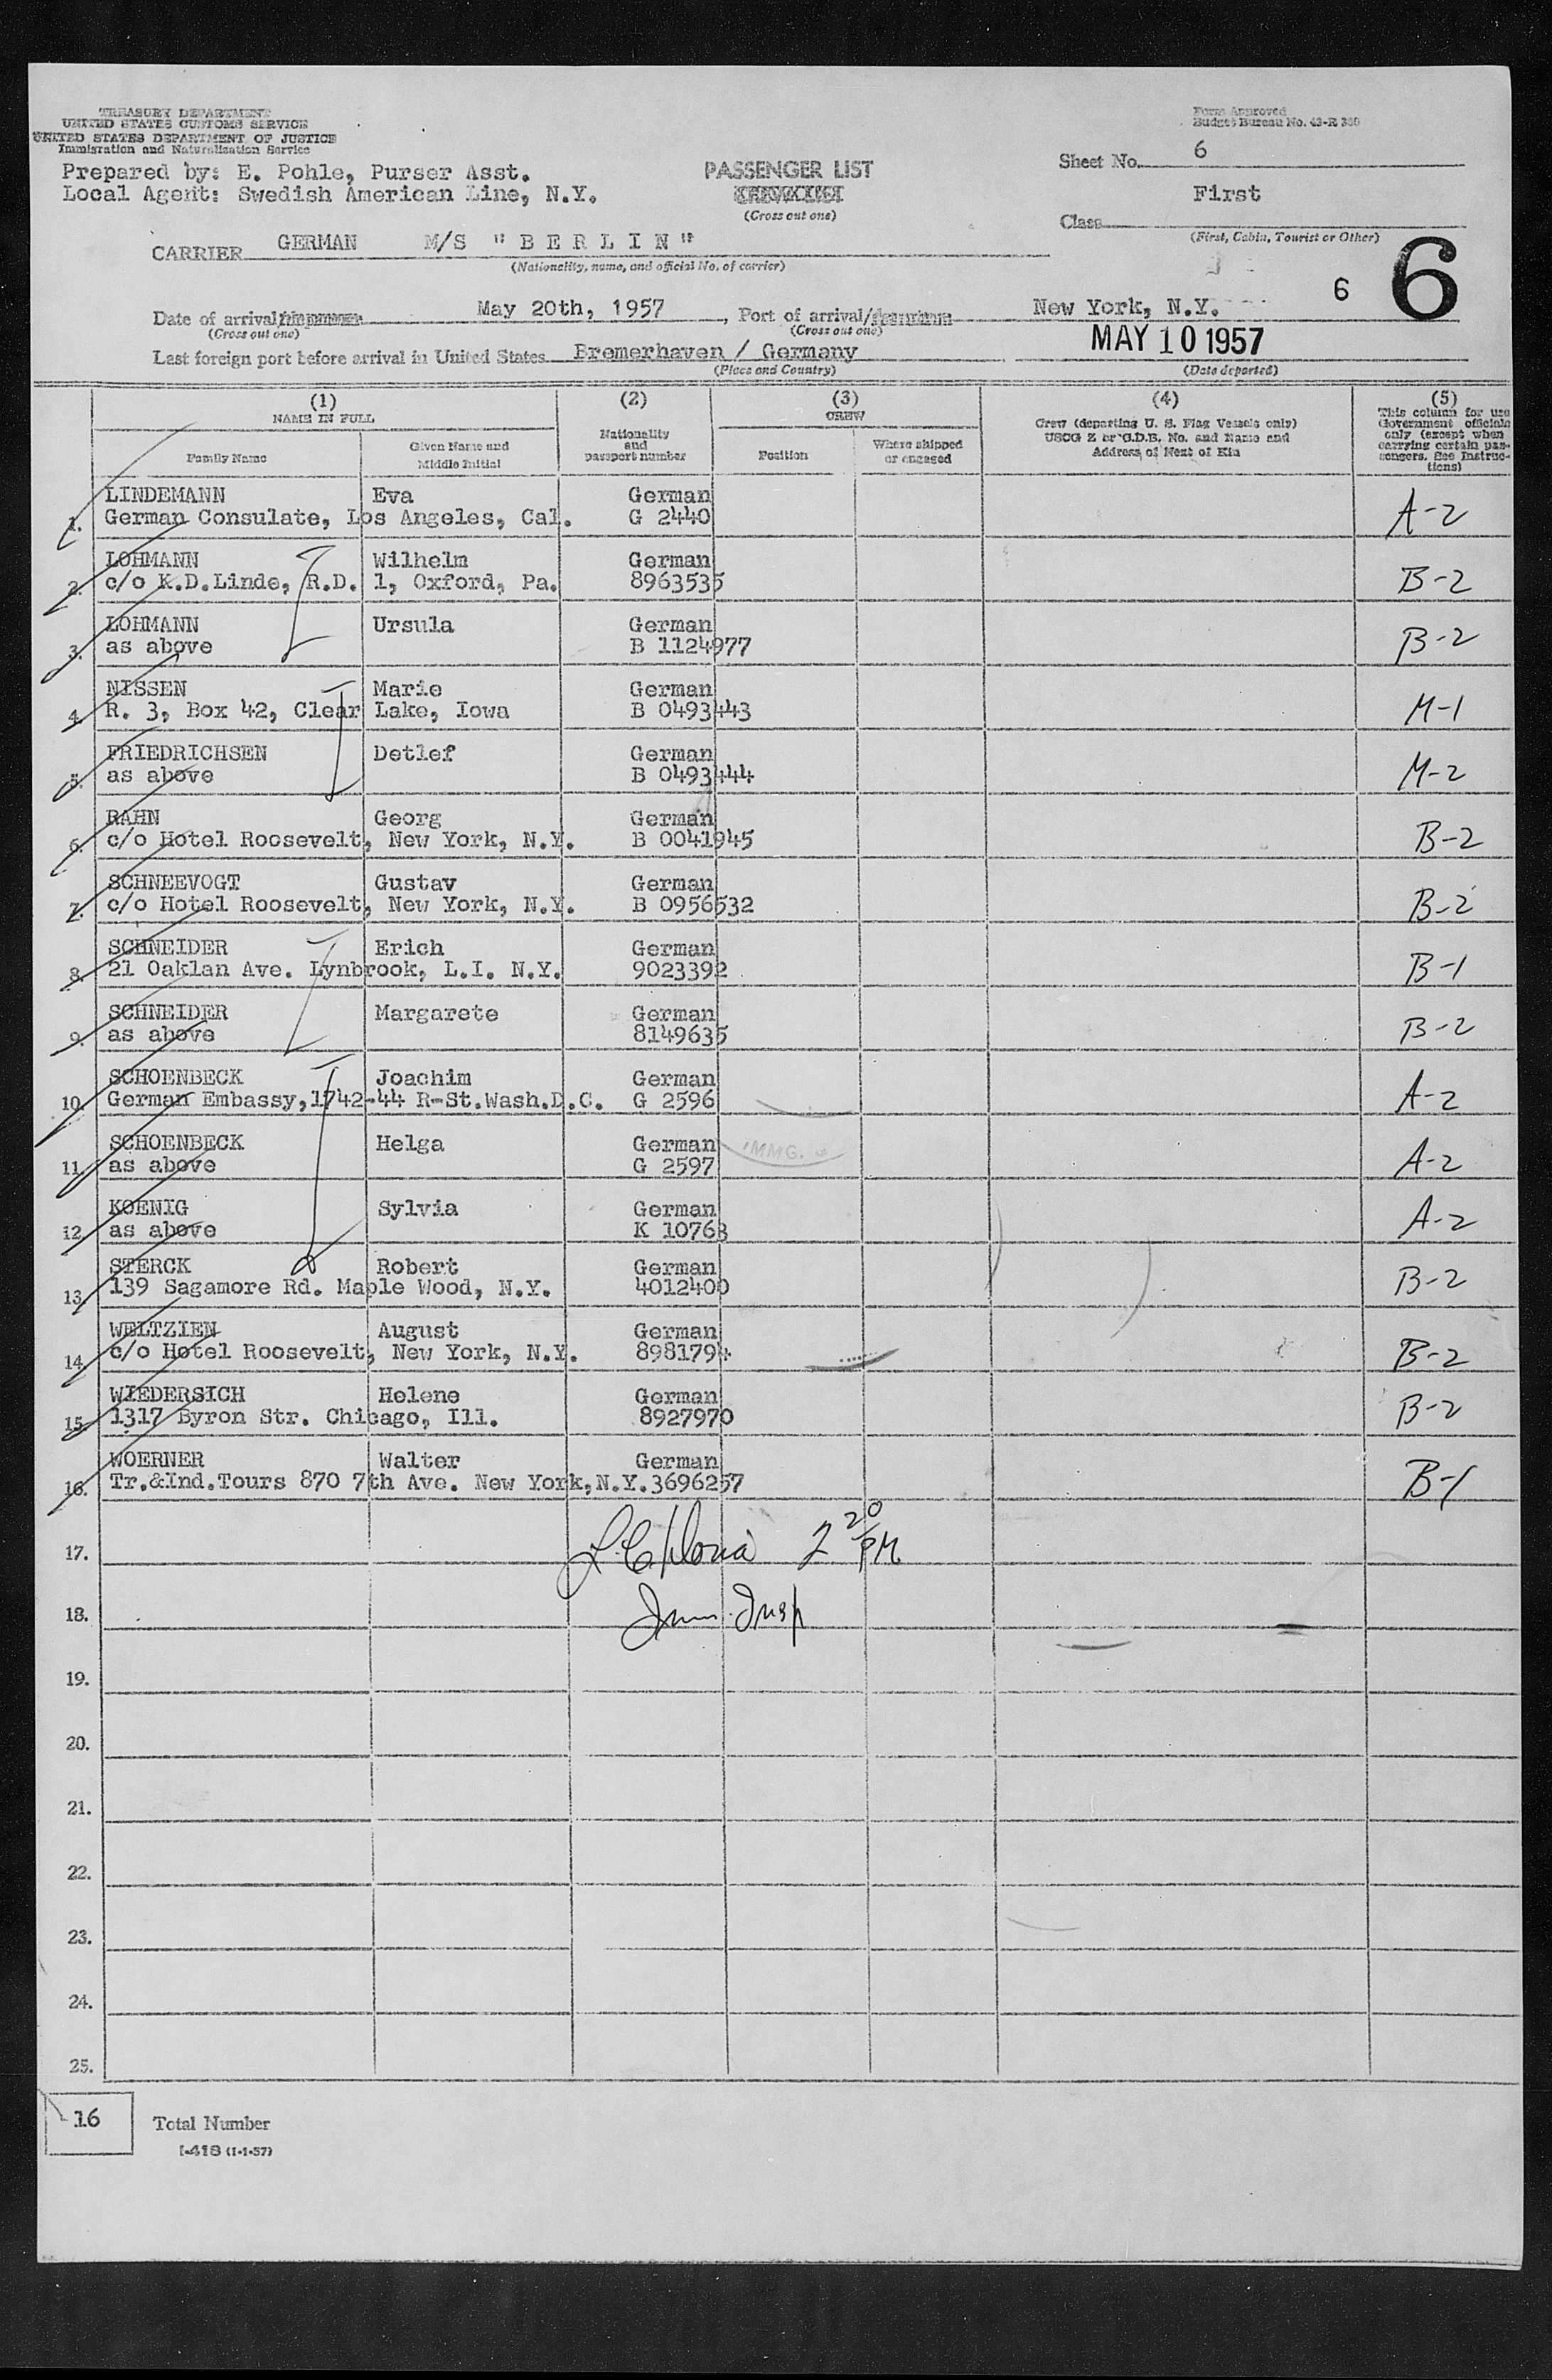 TREASURY DEPARTMENT
UNITED STATES CUSTOMS SERVICE
UNITED STATES DEPARTMENT OF JUSTICE
Immigration and Naturalization Service
Form Approved
Budget Bureau No. 43-R 360
Prepared by: E. Pohle, Purser Asst.
Local Agent: Swedish American Line, N.Y.
PASSENGER LIST
(Cross out one)
Sheet No. 6
Class First
(First, Cabin, Tourist or Other)
CARRIER GERMAN M/S "BERLIN"
(Nationality, name, and official No. of carrier)
6 6
Date of arrival/ May 20th, 1957, Port of arrival/ New York, N.Y.
(Cross out one) (Cross out one)
Last foreign port before arrival in United States Bremerhaven / Germany MAY 10 1957
(Place and Country) (Date departed)
(1) (2) (3) (4) (5)
NAME IN FULL
Family Name
Given Name and Middle Initial
Nationality and passport number
CREW
Position
Where shipped or engaged
Crew (departing U. S. Flag Vessels only)
USCG Z or C.D.B. No. and Name and
Address of Next of Kin
This column for use
Government officials
only (except when
carrying certain pas-
sengers. See Instruc-
tions)
LINDEMANN Eva German
1. German Consulate, Los Angeles, Cal. G 2440 A-2
LOHMANN Wilhelm German
2. c/o K.D.Linde, R.D. 1, Oxford, Pa. 8963535 B-2
LOHMANN Ursula German
3. as above B 1124977 B-2
NISSEN Marie German
4. R. 3, Box 42, Clear Lake, Iowa B 0493443 M-1
FRIEDRICHSEN Detlef German
5. as above B 0493444 M-2
RAHN Georg German
6. c/o Hotel Roosevelt, New York, N.Y. B 0041945 B-2
SCHNEEVOGT Gustav German
7. c/o Hotel Roosevelt, New York, N.Y. B 0956532 B-2
SCHNEIDER Erich German
8. 21 Oaklan Ave. Lynbrook, L.I. N.Y. 9023392 B-1
SCHNEIDER Margarete German
9. as above 8149635 B-2
SCHOENBECK Joachim German
10. German Embassy,1742-44 R-St.Wash.D.C. G 2596 A-2
SCHOENBECK Helga German
11. as above G 2597 A-2
KOENIG Sylvia German
12. as above K 10768 A-2
STERCK Robert German
13. 139 Sagamore Rd. Maple Wood, N.Y. 4012400 B-2
WELTZIEN August German
14. c/o Hotel Roosevelt, New York, N.Y. 8981794 B-2
WIEDERSICH Helene German
15. 1317 Byron Str. Chicago, Ill. 8927970 B-2
WOERNER Walter German
16. Tr.&Ind.Tours 870 7th Ave. New York,N.Y.3696257 B-1
17. 2 20 PM
18. Imm. Insp
19.
20.
21.
22.
23.
24.
25.
16 Total Number
I-418 (1-1-57)